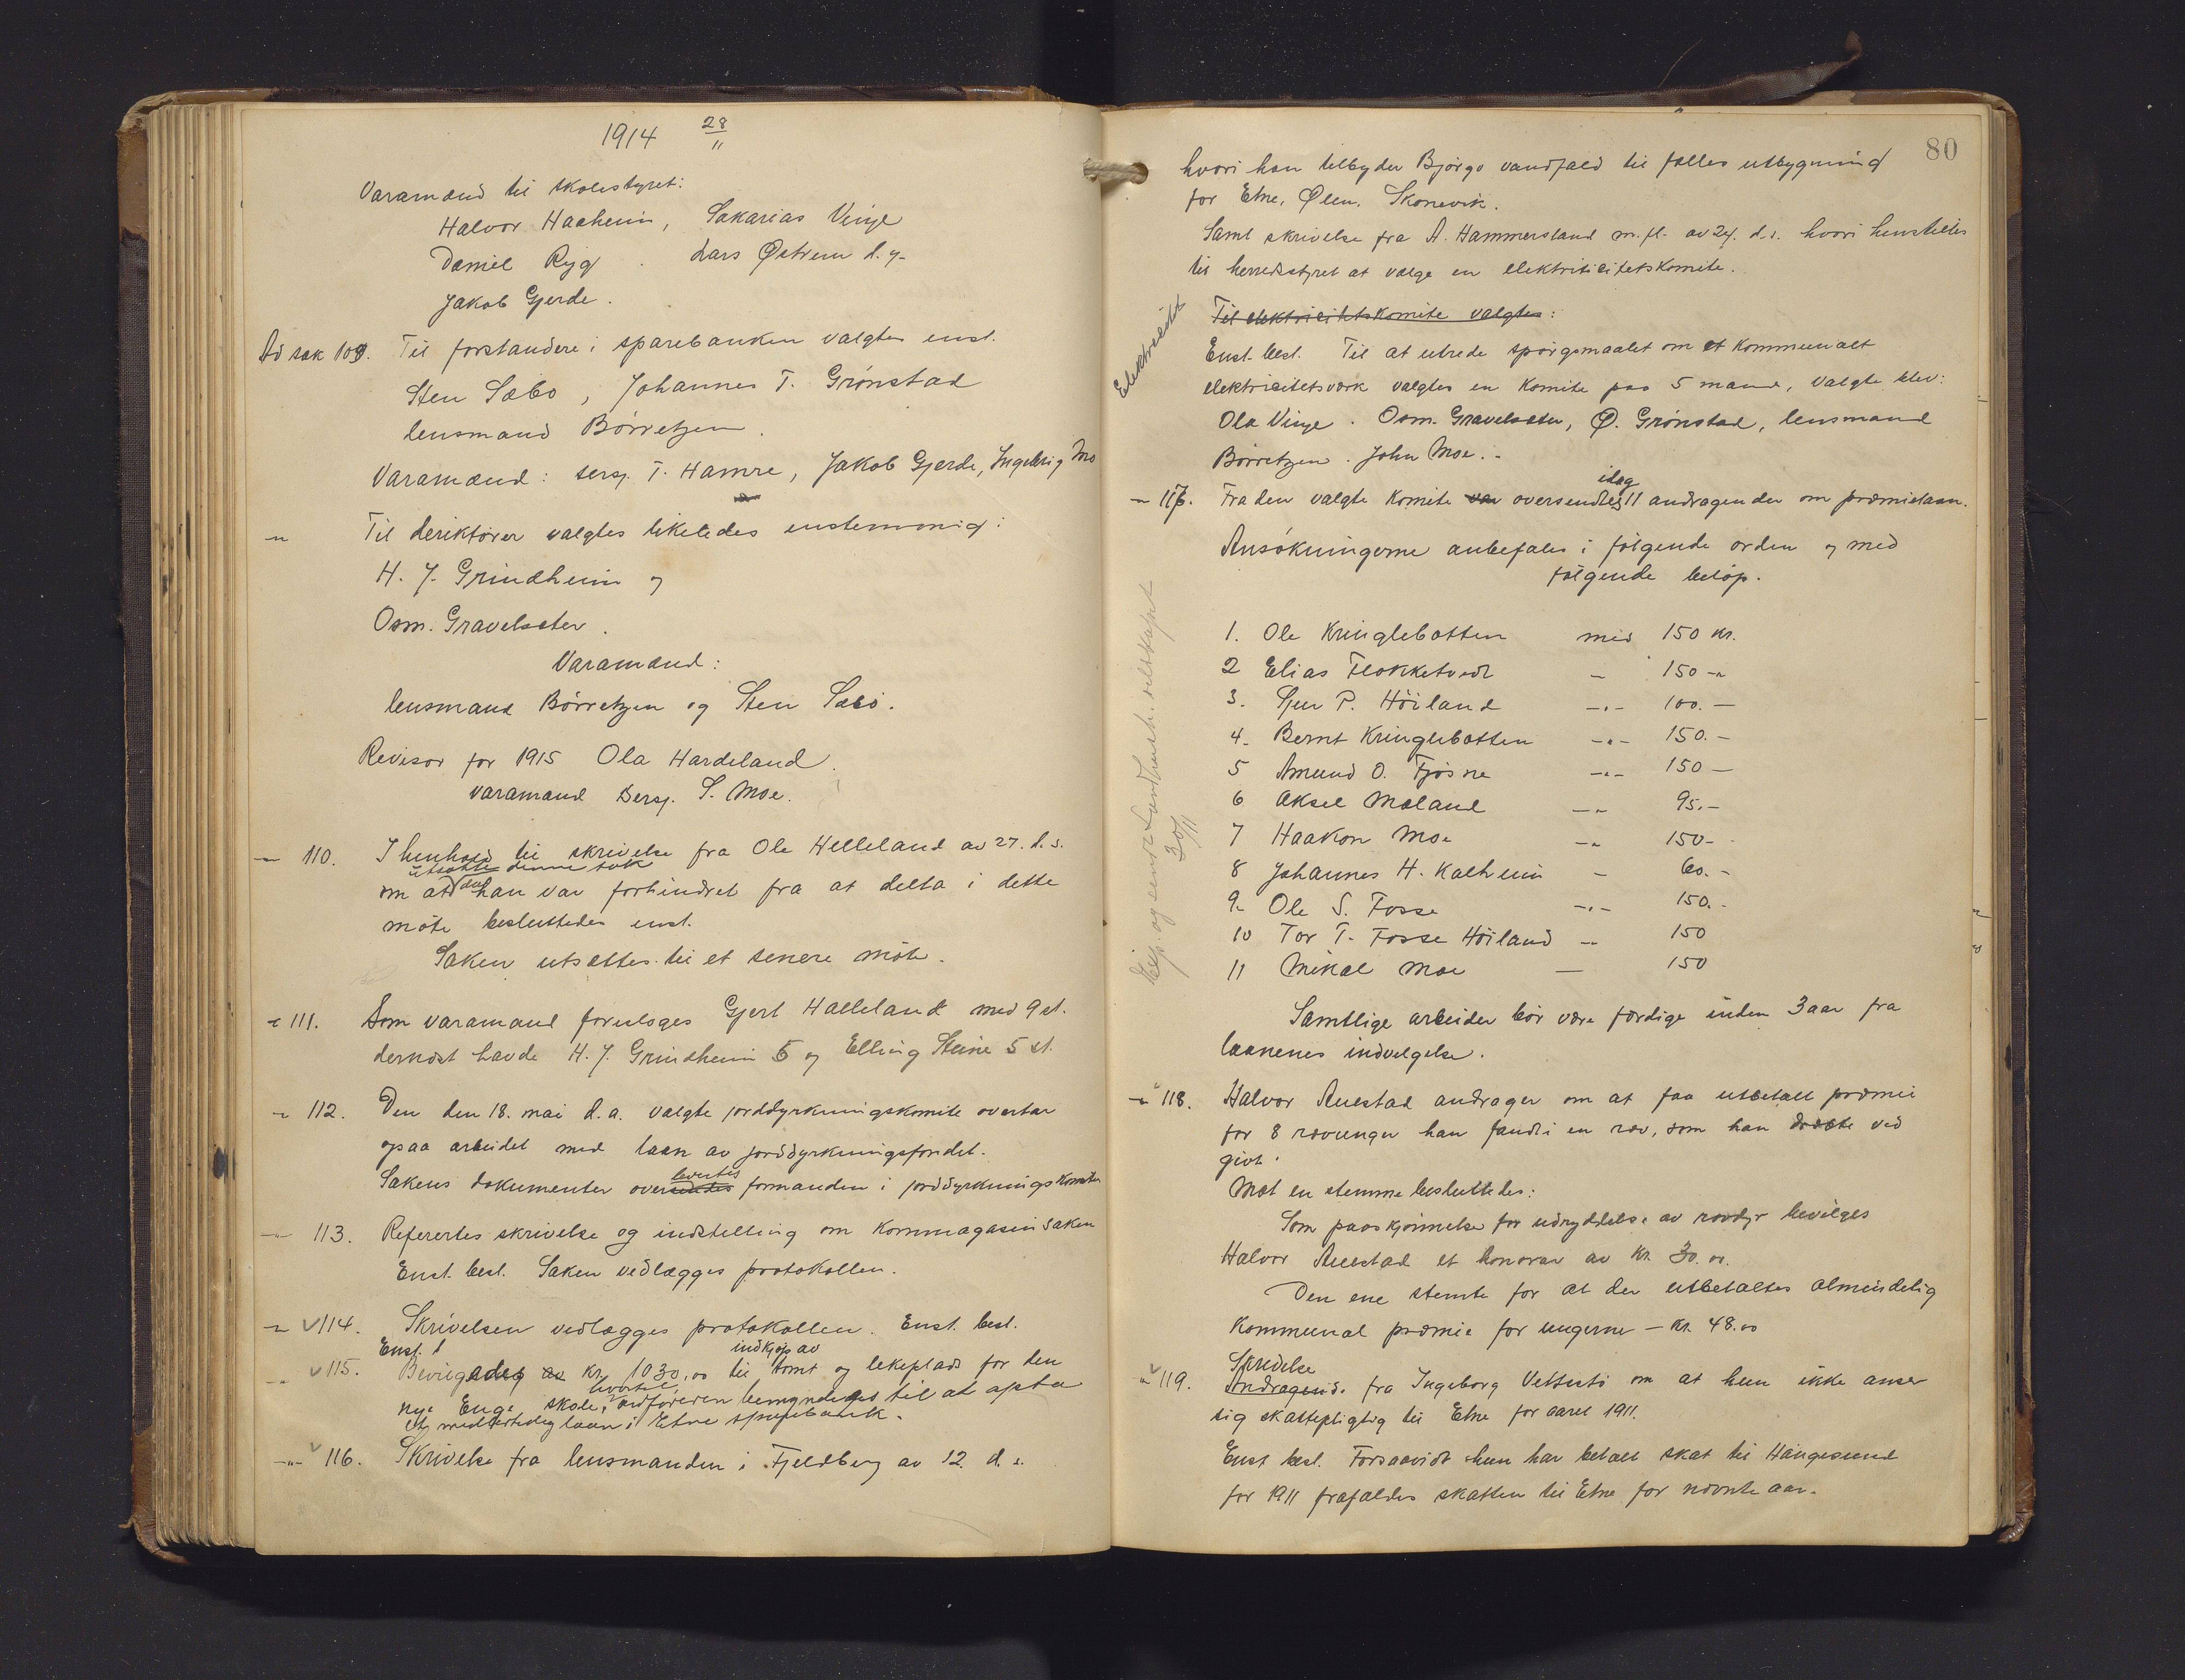 1914 28/11
Varamænd til skolestyret:
Halvor Haaheim, Sakarias Vinje
Daniel Ryg . Lars Østrem d.y.
Jakob Gjerde.
Ad sak 109. Til forstandere i sparebanken valgtes enst.
Sten Sæbø, Johannes T. Grønstad
lensmand Børretzen.
Varamænd: sersj. T. Hamre, Jakob Gjerde, Ingebrig Mo
-"- Til deriktører valgtes likeledes enstemmig:
H. J. Grindheim og
Osm. Gravelsæter.
Varamænd:
lensmand Børretzen og Sten Sæbø.
Revisor for 1915 Ola Hardeland.
varamand Sersj. S. Moe.
-"- 110. I henhold til skrivelse fra Ole Helleland av 27. d.s.
utsætte denne sak
om at da han var forhindret fra at delta i dette
møte besluttedes enst.
Saken utsættes til et senere møte.
-"- 111. Som varamand foresloges Gjert Halleland med 9 st.
dernæst havde H. J. Grindheim 5 og Elling Steine 5 st.
-"- 112. Den den 18. mai d.a. valgte jorddyrkningskomite overtar
ogsaa arbeidet med laan av jorddyrkningsfondet.
levertes
Sakens dokumenter oversendes formanden i jorddyrkningskomite
-"- 113. Referertes skrivelse og indstilling om Kornmagasinsaken
Enst. besl. Saken vedlægges protokollen.
-"- 114. Skrivelsen vedlægges protokollen. Enst. besl.
Enst. indkjøp av
-"- 115. Bevilgedes kr. 1030,00 til tomt og lekeplads for den
nye Enge skole, hvortil ordføreren bemyndiges til at opta
et midlertidig laan i Etne sparebank.
-"- 116. Skrivelse fra lensmanden i Fjeldberg av 12. d.s.
80
hvori han tilbyder Bjørgo vandfald til fælles utbygning
for Etne, Ølen, Skonevik.
Samt skrivelse fra A. Hammersland m.fl. av 24. d.s. hvori henstilles
til herredsstyret at vælge en elektricitetskomite.
Elektrisitet
Til elektricitetskomite valgtes:
Enst. besl. Til at utrede spørgsmaalet om et kommunalt
elektricitetsverk valgtes en komite paa 5 mand, valgte blev:
Ola Vinje . Osm. Gravelsæter, Ø. Grønstad, lensmand
Børretzen . John Moe.-
idag
-"- 117. Fra den valgte komite var oversendtes 11 andragender om præmielaan.
Ansøkningerne anbefales i følgende orden og med
følgende beløp.
1. Ole Kringlebotten med 150 kr.
2 Elias Flokketvedt - 150 -"
3. Sjur P. Höiland -"- 100.-
4. Bernt Kringlebotten -"- 150.-
5 Amund O. Fjøsne -"- 150 -
6 Aksel Mæland -"- 95.-
7 Haakon Moe -"- 150-
8 Johannes H. Kalheim - 60.-
9. Ole S. Fosse -"- 150.-
10 Tor T. Fosse Höiland -"- 150
11 Mikal Moe - 150
30/11
Samtlige arbeider bør være færdige inden 3 aar fra
laanenes indvilgelse.
-"- 118. Halvor Auestad andrager om at faa utbetalt præmie
for 8 rævunger han fandt i en ræv, som han dræpte ved
givt.
Mot en stemme besluttedes:
Som paaskjønnelse for udryddelse av rovdyr bevilges
Halvor Auestad et honorar av kr. 30.00.
Den ene stemte for at der utbetaltes almindelig
kommunal præmie for ungerne - kr. 48.00
Skrivelse
-"- 119. Andragende fra Ingeborg Vettestø om at hun ikke anser
sig skattepligtig til Etne for aaret 1911.
Enst. besl. Forsaavidt hun har betalt skat til Haugesund
for 1911 frafaldes skatten til Etne for nævnte aar.